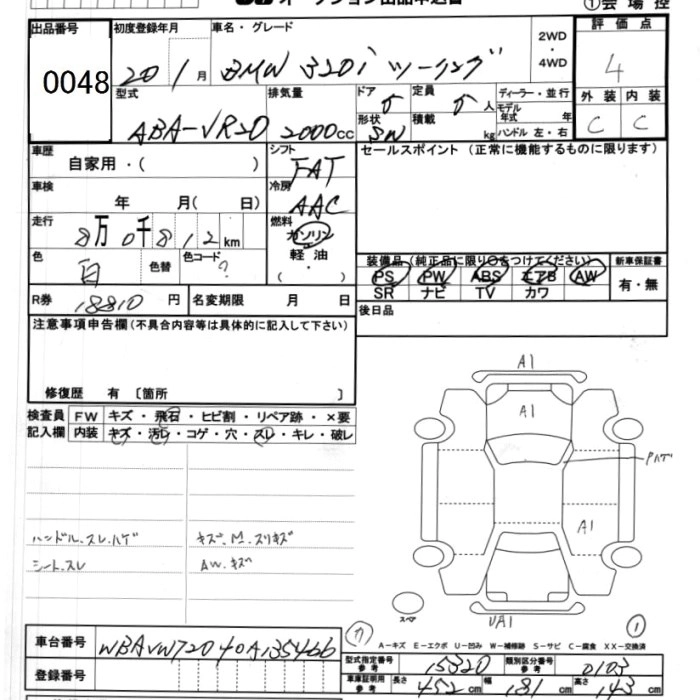 ①会場控
出品番号 初度登録年月 車名・グレード 評価点
0048 20 1月 BMW 320i ツーリング 2WD・4WD 4
型式 排気量 ドア 定員 ディーラー・並行 外装 内装
ABA-VR20 2000cc 5 5人 モデル年式 年 C C
形状 SW 積載 kg ハンドル 左・右
車歴 シフト セールスポイント(正常に機能するものに限ります)
自家用・( ) FAT
車検 冷房
年 月( 日) AAC
走行 燃料
8万0千812km ガソリン
色 色替 色コード 軽油 装備品(純正品に限り○をつけてください) 新車保証書
白 ? ・( ) PS PW ABS エアB AW 有・無
SR ナビ TV カワ
R券 18810円 名変期限 月 日 後日品
注意事項申告欄(不具合内容等は具体的に記入して下さい)
修復歴 有 〔箇所 〕
検査員 FW キズ・飛石・ヒビ割・リペア跡・×要
記入欄 内装 キズ・汚レ・コゲ・穴・スレ・キレ・破レ
A1
A1
Pハゲ
A1
ハンドル.スレ.ハゲ キズ.M.スリキズ
シート.スレ AW.キズ
スペア
UA1
カ ①
A−キズ E−エクボ U−凹み W−補修跡 S−サビ C−腐食 XX−交換済
車台番号 WBAVW72040A135466
型式指定番号 参考 15320 類別区分番号 参考 0103
登録番号 車庫証明用 参考 長さ 452cm 幅 181cm 高さ 143cm